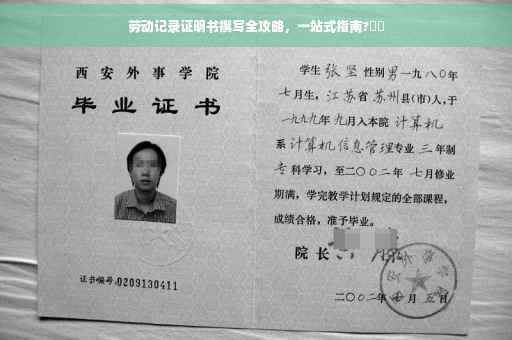 劳动记录证明书撰写全攻略，一站式指南?
西安外事学院
毕业证书
证书编号:0209130411
学生 张坚 性别 男 一九八〇年
七月生，江苏省苏州县(市)人，于
一九九九年九月入本院 计算机
系 计算机信息管理 专业 三 年制
专科学习，至二〇〇二年 七月修业
期满，学完教学计划规定的全部课程，
成绩合格，准予毕业。
院长
二〇〇二年 月五日